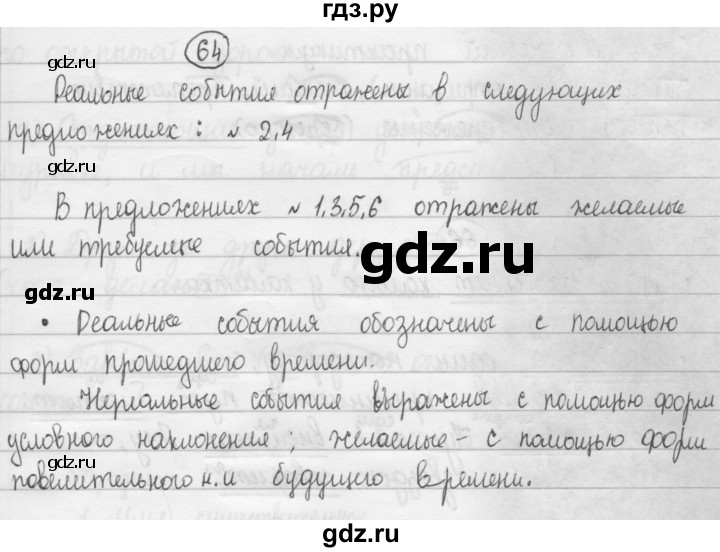 гдз.ру
64
Реальные события отражены в следующих
gdz.ru
gdz.ru
предложениях: № 2,4
gdz.ru
gdz.ru
В предложениях № 1,3,5,6 отражены желаемые
или требуемые события.
gdz.ru
gdz.ru
• Реальные события обозначены с помощью
форм прошедшего времени.
gdz.ru
Нереальные события выражены с помощью форм
условного наклонения, желаемые – с помощью форм
gdz.ru
gdz.ru
повелительного н. и будущего времени.
gdz.ru